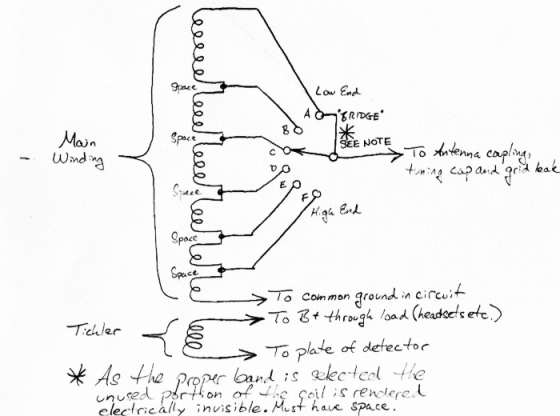 Low End
Space
A
"BRIDGE"
*
SEE NOTE
B
Main
Winding
Space
C
To Antenna coupling,
tuning cap and grid leak
D
Space
E
F
High End
Space
Space
To common ground in circuit
Tickler
To B+ through load (headsets etc.)
To plate of detector
* As the proper band is selected the
unused portion of the coil is rendered
electrically invisible. Must have space.